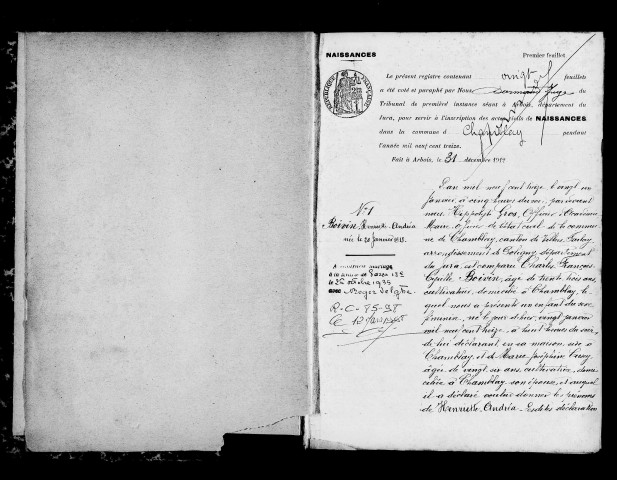 NAISSANCES
Premier feuillet
Le présent registre contenant vingt feuillets
a été coté et paraphé par Nous, Juge du
Tribunal de première instance séant à Arbois, département du
Jura, pour servir à l'inscription des actes de NAISSANCES
dans la commune d Chamblay pendant
l'année mil neuf cent treize.
Fait à Arbois, le 31 décembre 1912
RÉPUBLIQUE FRANÇAISE
N° 1
Boivin Henriette-Andréa
née le 20 Janvier 1913.
A contracté mariage
le 26 octobre 1935
avec Roger
L'an mil neuf cent treize, le vingt un
janvier, à cinq heures du soir, par devant
nous, Hippolyte Gros,
Maire, officier de l'état civil de la commu
ne de Chamblay, canton de Villers-Farlay,
arrondissement de Poligny, département
du Jura, est comparu Charles François
Boivin, âgé de trente trois ans,
cultivateur, domicilié à Chamblay, le
quel nous a présenté un enfant du sexe
féminin, né le jour de hier, vingt janvier
mil neuf cent treize, à huit heures du soir,
de lui déclarant, en sa maison, sise à
Chamblay, et de Marie Joséphine
âgée de vingt six ans, cultivatrice, domi
ciliée à Chamblay, son épouse, et auquel
il a déclaré vouloir donner les prénoms
de Henriette-Andréa. déclaration